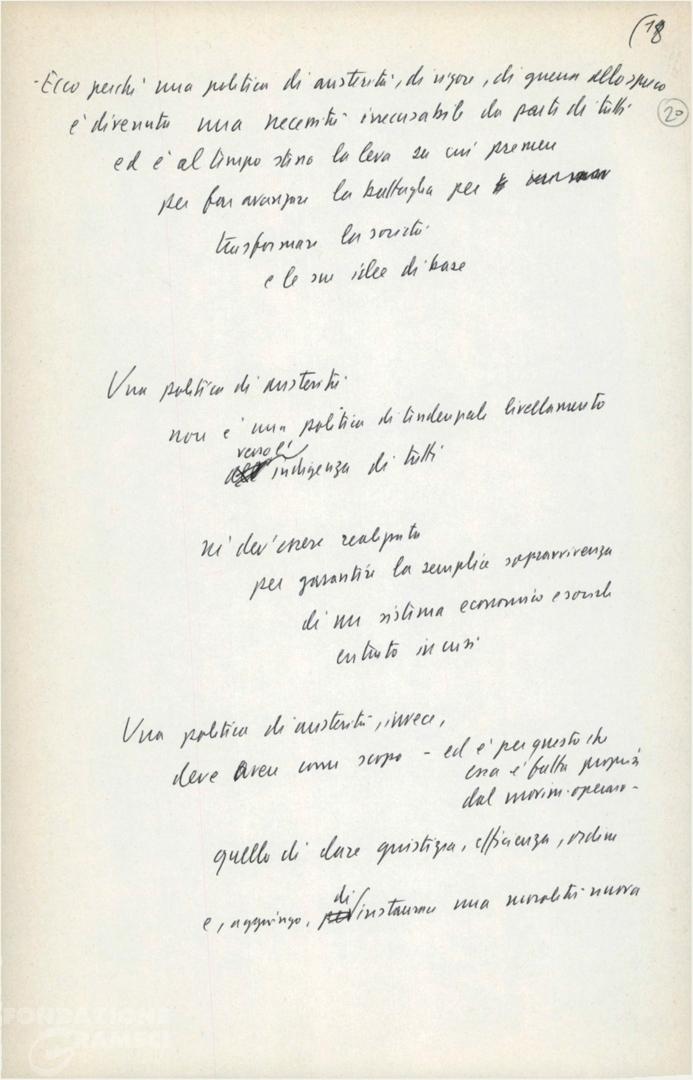 (18
-Ecco perché una politica di austerità, di rigore, di guerra allo spreco
20
è divenuta una necessità irrecusabile da parte di tutti
ed è al tempo stesso la leva su cui premere
per far avanzare la battaglia per
trasformare la società
e le sue idee di base
Una politica di austerità
non è una politica di tendenziale livellamento
verso l'
indigenza di tutti
né dev'essere realizzata
per garantire la semplice sopravvivenza
di un sistema economico e sociale
entrato in crisi
Una politica di austerità, invece,
deve avere come scopo - ed è per questo che
essa è fatta propria
dal movim. operaio -
quello di dare giustizia, efficienza, ordine
di
e, aggiungo, per instaurare una moralità nuova
FONDAZIONE
GRAMSCI